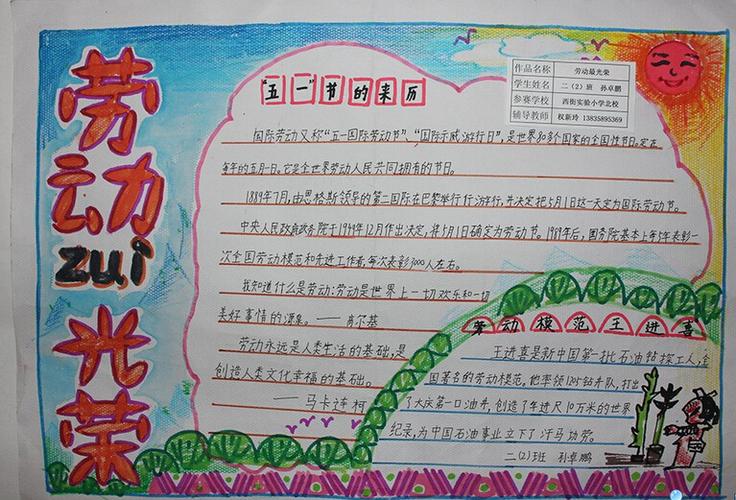 劳动zui光荣
作品名称 劳动最光荣
学生姓名 二（2）班 孙卓鹏
参赛学校 西街实验小学北校
辅导教师 权新玲 13835895369
"五一"节的来历
国际劳动又称"五一国际劳动节"、"国际示威游行日"，是世界80多个国家的全国性节日。定在
每年的五月一日。它是全世界劳动人民共同拥有的节日。
1889年7月，由恩格斯领导的第二国际在巴黎举行行游行，并决定把5月1日这一天定为国际劳动节。
中央人民政府政务院于1949年12月作出决定，将5月1日确定为劳动节。1989年后，国务院基本上每5年表彰一
次全国劳动模范和先进工作者，每次表彰3000人左右。
我知道什么是劳动：劳动是世界上一切欢乐和一切
美好事情的源泉。——高尔基
劳动永远是人类生活的基础，是
创造人类文化幸福的基础。
——马卡连柯
劳动模范王进喜
王进喜是新中国第一批石油钻探工人，全
国著名的劳动模范，他率领1205钻井队，打出
了大庆第一口油井，创造了年进尺10万米的世界
纪录，为中国石油事业立下了汗马功劳。
二（2）班 孙卓鹏